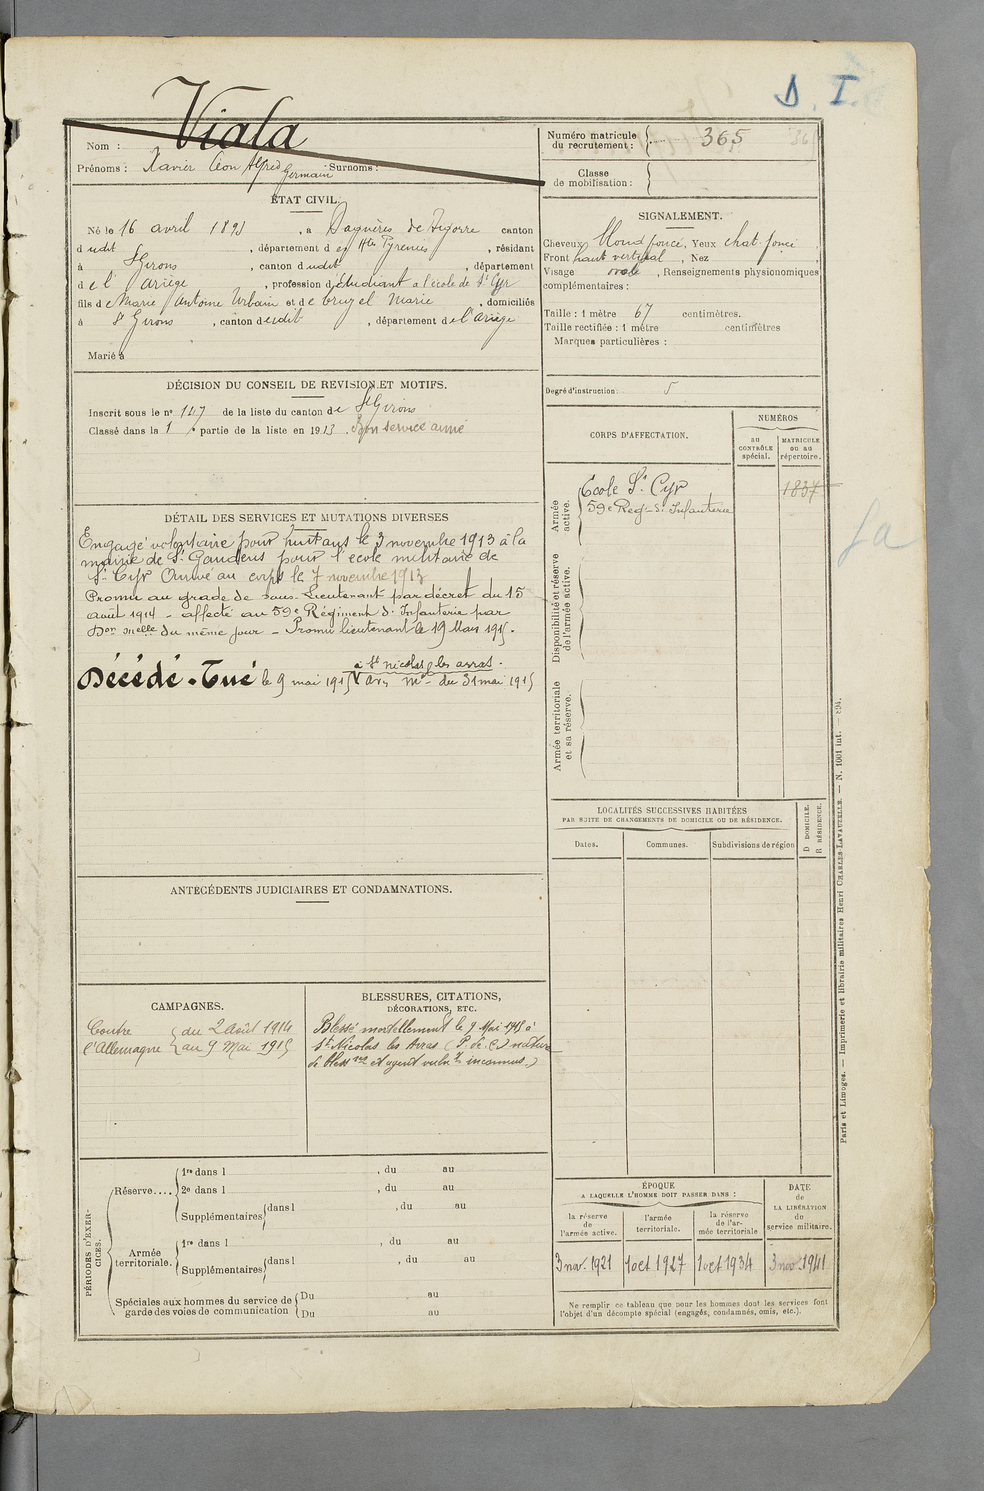 D. I.
Viala
Nom :
Prénoms : Xavier Léon Alfred Germain Surnoms :
Numéro matricule du recrutement : 365
Classe de mobilisation :
ÉTAT CIVIL.
Né le 16 avril 1893, à Bagnères de Bigorre canton
dudit, département des Htes Pyrénées, résidant
à St Girons, canton dudit, département
de l'Ariège, profession d'étudiant à l'école de St Cyr
fils de Marie Antoine Urbain et de Marie, domiciliés
à St Girons, canton dudit, département de l'Ariège
Marié à
SIGNALEMENT.
Cheveux blond foncé, Yeux chat. foncé
Front haut vertical, Nez ,
Visage ovale, Renseignements physionomiques
complémentaires :
Taille : 1 mètre 67 centimètres.
Taille rectifiée : 1 mètre centimètres
Marques particulières :
Degré d'instruction : 5
DÉCISION DU CONSEIL DE REVISION ET MOTIFS.
Inscrit sous le n° 147 de la liste du canton de St Girons
Classé dans la 1 e partie de la liste en 1913. Bon service armé
DÉTAIL DES SERVICES ET MUTATIONS DIVERSES
Engagé volontaire pour huit ans le 3 novembre 1913 à la
mairie de St Gaudens pour l'école militaire de
St Cyr Arrivé au corps le 7 novembre 1913
Promu au grade de sous-Lieutenant par décret du 15
août 1914 - affecté au 59e Régiment d'Infanterie par
Don melle du même jour - Promu lieutenant le 19 Mars 1915.
à St nicolas les arras.
Décédé - Tué le 9 mai 1915 av. m. du 31 mai 1915
CORPS D'AFFECTATION.
NUMÉROS
au CONTRÔLE spécial.
MATRICULE OU AU répertoire.
Armée active.
École St Cyr 1837
59e Régt d'Infanterie
Disponibilité et réserve de l'armée active.
Armée territoriale et sa réserve.
LOCALITÉS SUCCESSIVES HABITÉES
PAR SUITE DE CHANGEMENTS DE DOMICILE OU DE RÉSIDENCE.
Dates. Communes. Subdivisions de région
D DOMICILE.
R RÉSIDENCE.
ANTÉCÉDENTS JUDICIAIRES ET CONDAMNATIONS.
CAMPAGNES.
Contre du 2 août 1914
l'Allemagne au 9 Mai 1915
BLESSURES, CITATIONS,
DÉCORATIONS, ETC.
Blessé mortellement le 9 Mai 1915 à
St Nicolas les Arras (P. de C.) nature
de bless re et agent vuln t inconnus.)
PÉRIODES D'EXERCICES.
Réserve.... 1re dans l , du au
2e dans l , du au
Supplémentaires dans l , du au
Armée territoriale. 1re dans l , du au
Supplémentaires dans l , du au
Spéciales aux hommes du service de garde des voies de communication Du au
Du au
ÉPOQUE
A LAQUELLE L'HOMME DOIT PASSER DANS :
la réserve de l'armée active.
l'armée territoriale.
la réserve de l'armée territoriale
DATE de LA LIBÉRATION du service militaire.
3 nov. 1921 1 oct 1927 1 oct 1934 3 nov. 1941
Ne remplir ce tableau que pour les hommes dont les services font
l'objet d'un décompte spécial (engagés, condamnés, omis, etc.).
Paris et Limoges. — Imprimerie et librairie militaires Henri CHARLES-LAVAUZELLE. — N. 1001 int. — 894.